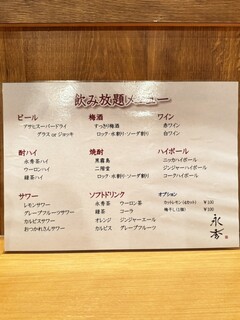 飲み放題メニュー
ビール
アサヒスーパードライ
グラス or ジョッキ
梅酒
すっきり梅酒
ロック・水割り・ソーダ割り
ワイン
赤ワイン
白ワイン
酎ハイ
永秀茶ハイ
ウーロンハイ
緑茶ハイ
焼酎
黒霧島
二階堂
ロック・水割り・ソーダ割り
ハイボール
ニッカハイボール
ジンジャーハイボール
コークハイボール
サワー
レモンサワー
グレープフルーツサワー
カルピスサワー
おつかれさんサワー
ソフトドリンク
永秀茶 ウーロン茶
緑茶 コーラ
オレンジ ジンジャーエール
カルピス グレープフルーツ
オプション
カットレモン(4カット) ¥100
梅干し(1個) ¥100
永秀